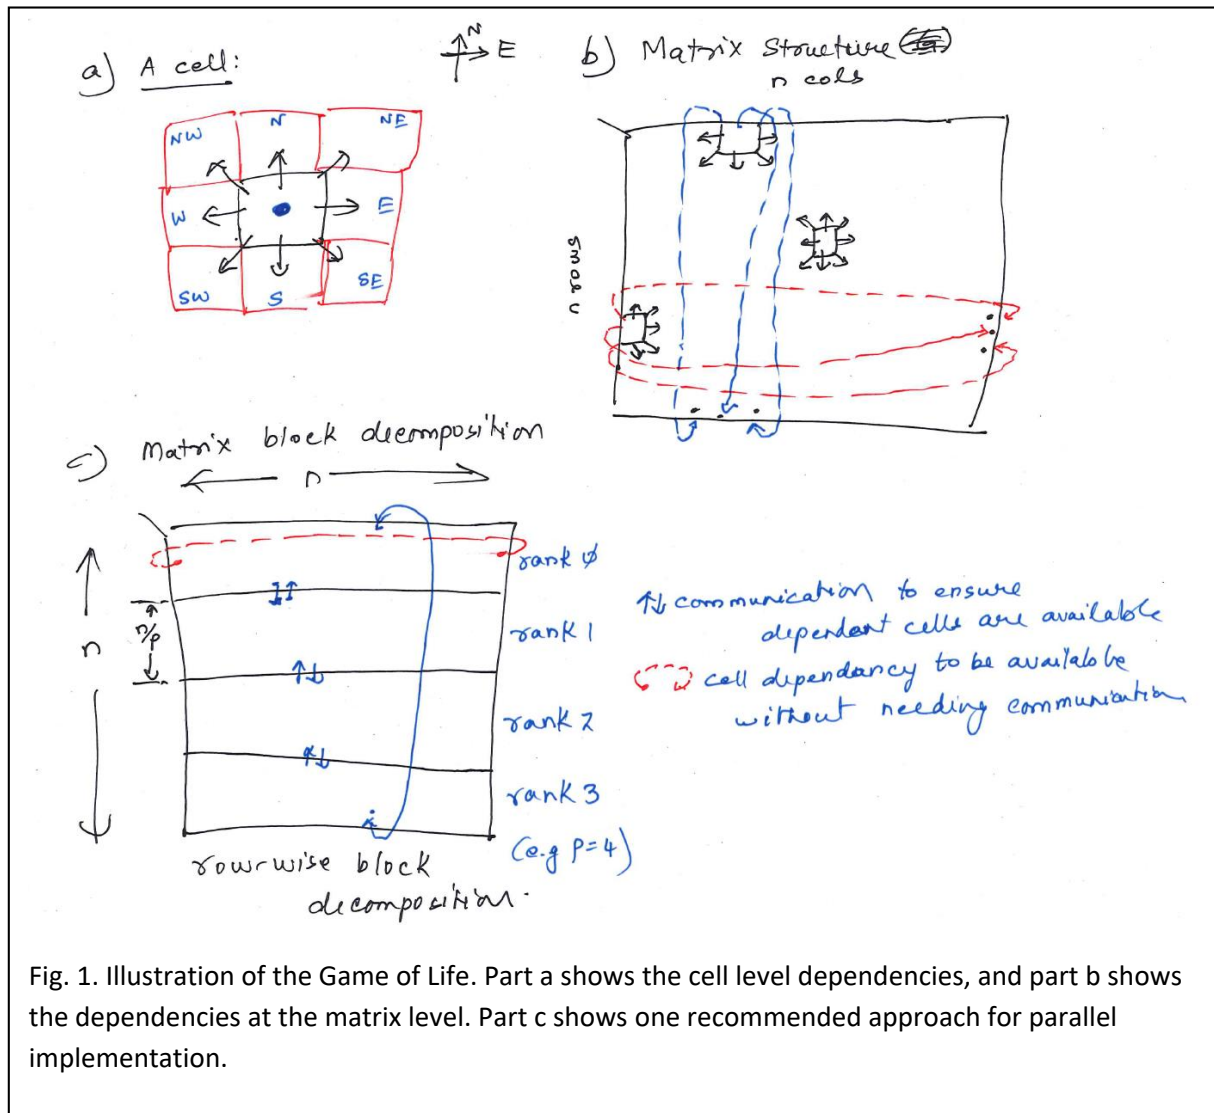 a) A cell:
N
E
NW
N
NE
W
E
SW
S
SE
b) Matrix Structure
n cols
n rows
c) Matrix block decomposition
n
n
n/p
rank 0
rank 1
rank 2
rank 3
(e.g P=4)
row-wise block
decomposition.
↑↓ communication to ensure
dependent cells are available
cell dependancy to be available
without needing communication
Fig. 1. Illustration of the Game of Life. Part a shows the cell level dependencies, and part b shows
the dependencies at the matrix level. Part c shows one recommended approach for parallel
implementation.